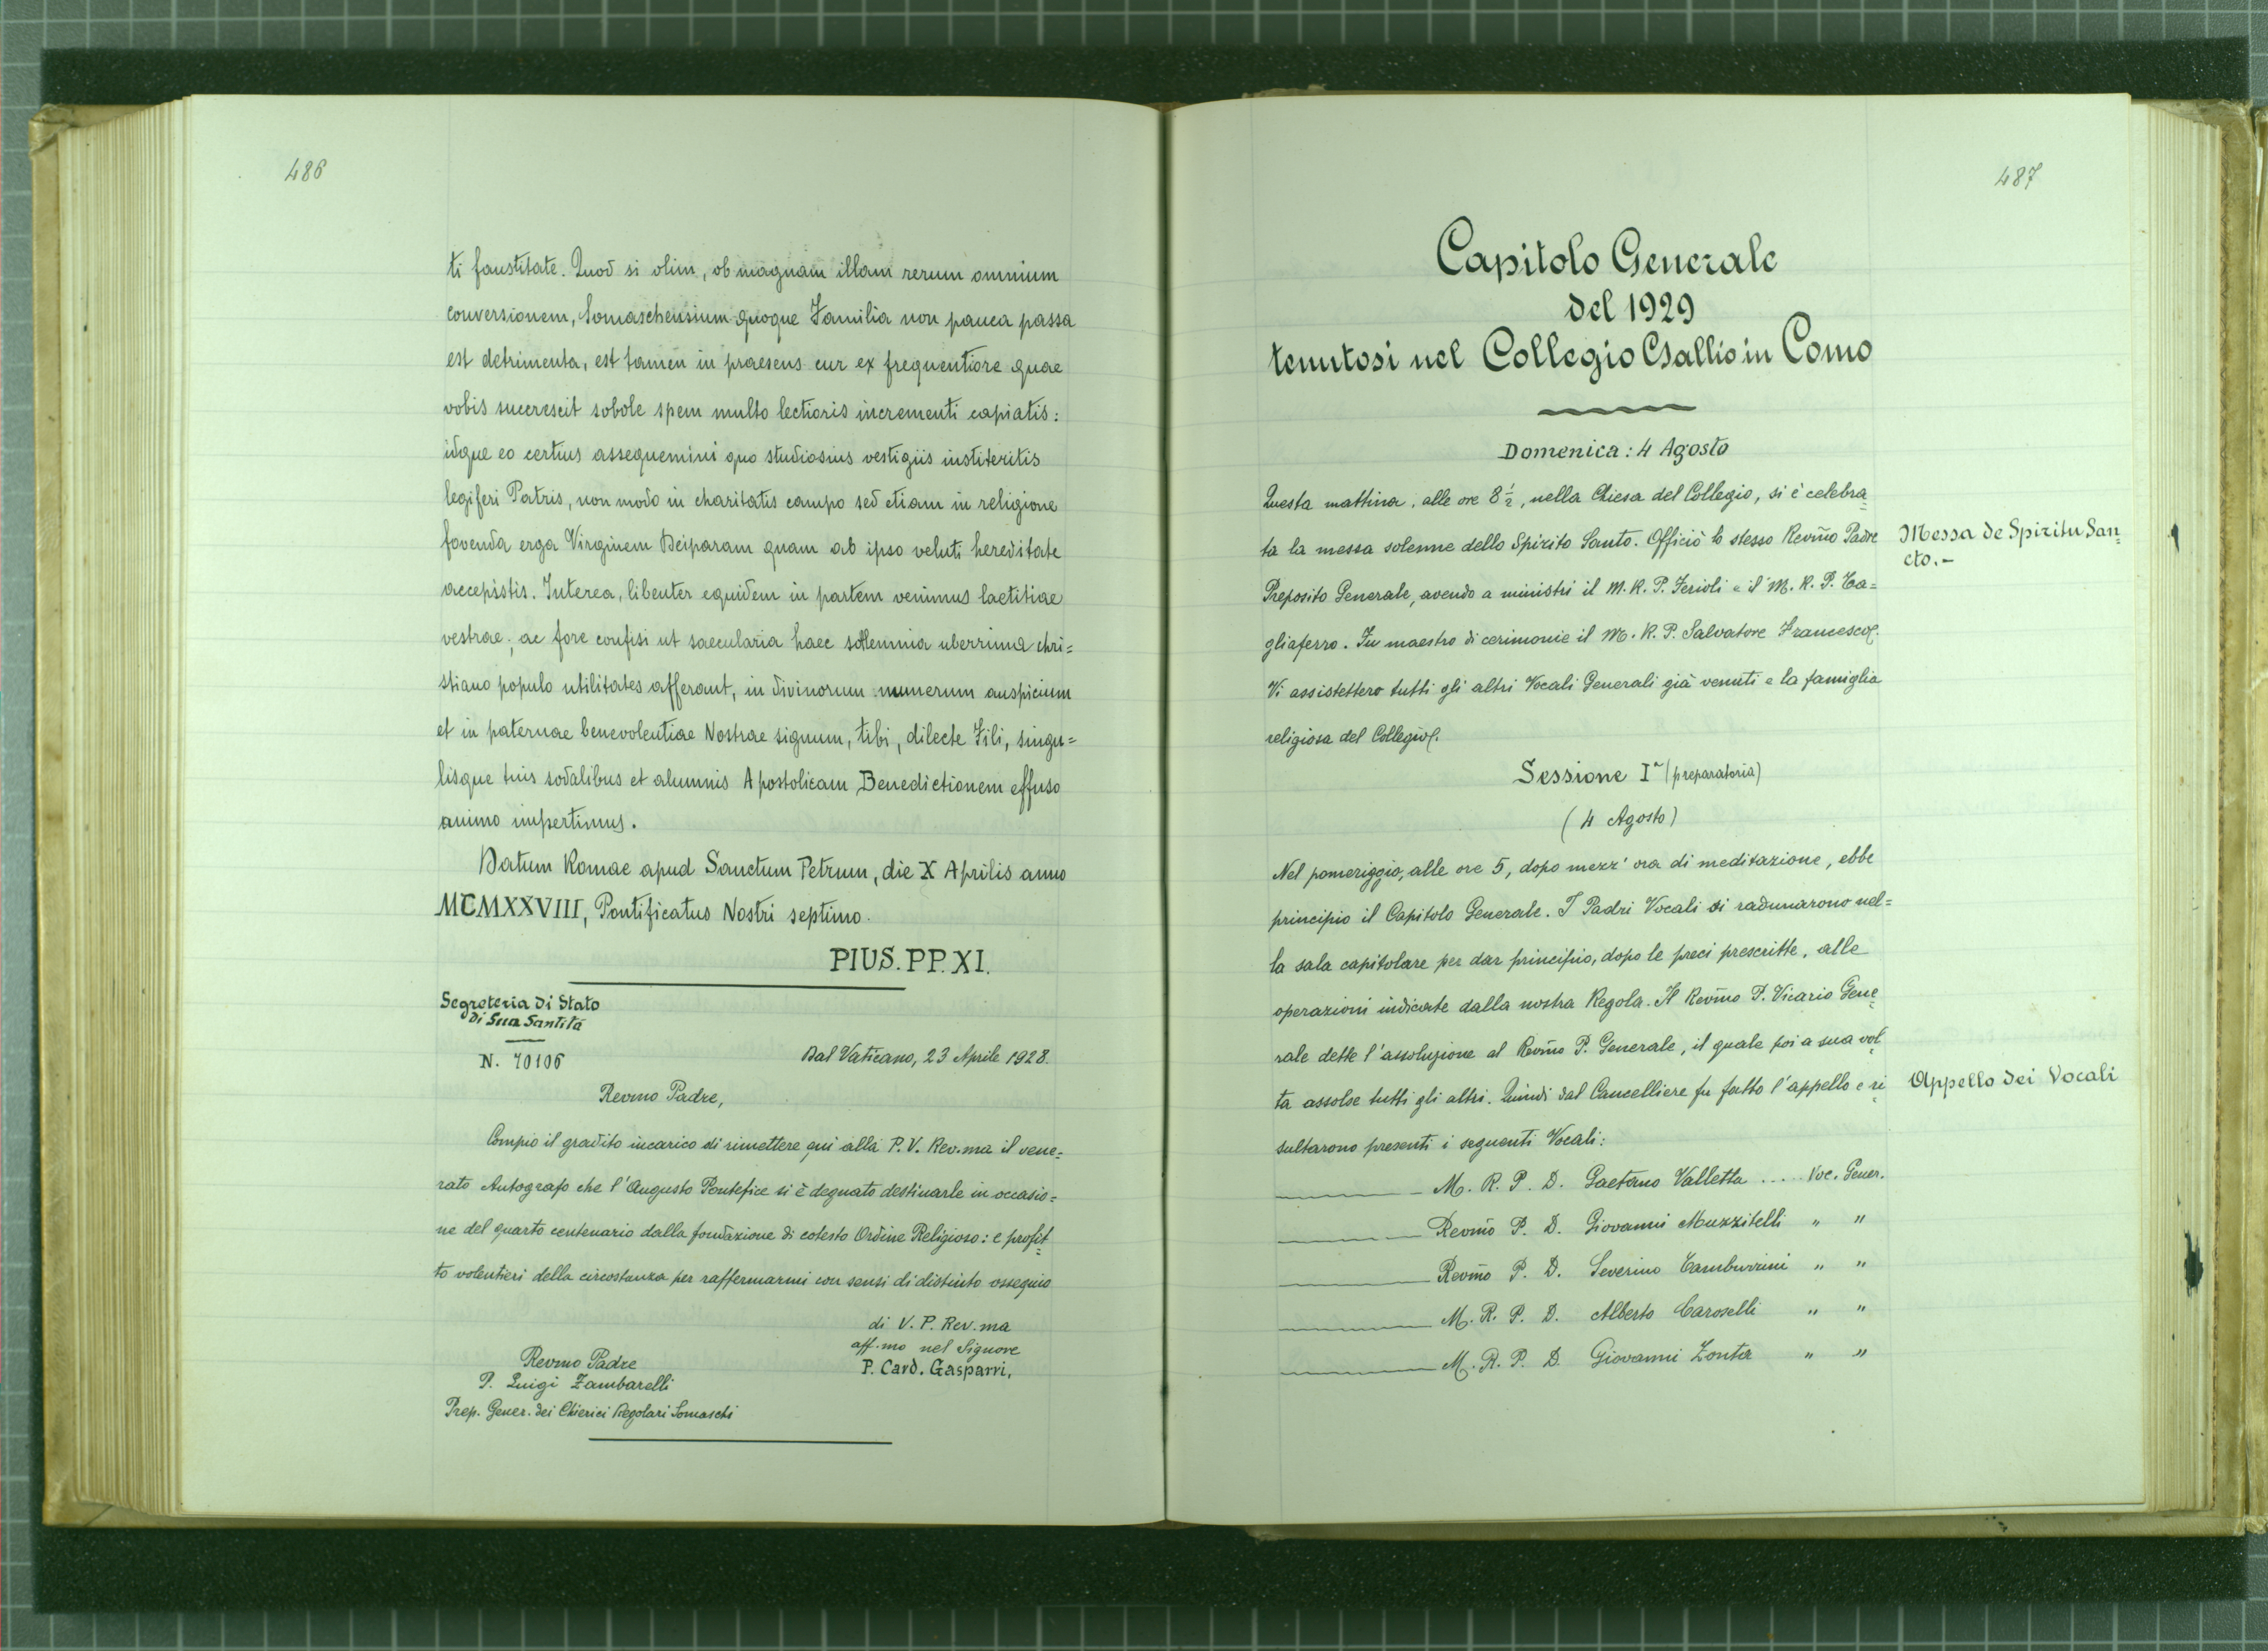 486
ti faustitate. Quod si olim, ob magnam illam rerum omnium
conversionem, Somaschensium quoque Familia non pauca passa
est detrimenta, est tamen in praesens cur ex frequentiore quae
vobis succrescit sobole spem multo lectioris incrementi capiatis:
idque eo certius assequemini quo studiosius vestigiis institeritis
legiferi Patris, non modo in charitatis campo sed etiam in religione
fovenda erga Virginem Deiparam quam ab ipso veluti hereditate
accepistis. Interea, libenter equidem in partem venimus laetitiae
vestrae; ac fore confisi ut saecularia haec sollemnia uberrima chri=
stiano populo utilitates afferant, in divinorum munerum auspicium
et in paternae benevolentiae Nostrae signum, tibi, dilecte Fili, singu=
lisque tuis sodalibus et alumnis Apostolicam Benedictionem effuso
animo impertimus.
Datum Romae apud Sanctum Petrum, die X Aprilis anno
MCMXXVIII, Pontificatus Nostri septimo.
PIUS. PP. XI.
Segreteria di Stato
di Sua Santità
N. 70106
Dal Vaticano, 23 Aprile 1928.
Revmo Padre,
Compio il gradito incarico di rimettere qui alla P. V. Rev.ma il vene=
rato Autografo che l'Augusto Pontefice si è degnato destinarle in occasio=
ne del quarto centenario dalla fondazione di cotesto Ordine Religioso: e profit=
to volentieri della circostanza per raffermarmi con sensi di distinto ossequio
di V. P. Rev.ma
aff.mo nel Signore
P. Card. Gasparri.
Revmo Padre
P. Luigi Zambarelli
Prep. Gener. dei Chierici Regolari Somaschi
487
Capitolo Generale
del 1929
tenutosi nel Collegio Gallio in Como
Domenica: 4 Agosto
Questa mattina, alle ore 8 1/2, nella Chiesa del Collegio, si è celebra=
ta la messa solenne dello Spirito Santo. Officiò lo stesso Revm̃o Padre
Messa de Spiritu San=
cto.-
Preposito Generale, avendo a ministri il M. R. P. Ferioli e il M. R. P. Ta=
gliaferro. Fu maestro di cerimonie il M. R. P. Salvatore Francesco.
Vi assistettero tutti gli altri Vocali Generali già venuti e la famiglia
religiosa del Collegio.
Sessione Iª (preparatoria)
(4 Agosto)
Nel pomeriggio, alle ore 5, dopo mezz'ora di meditazione, ebbe
principio il Capitolo Generale. I Padri Vocali si radunarono nel=
la sala capitolare per dar principio, dopo le preci prescritte, alle
operazioni indicate dalla nostra Regola. Il Revm̃o P. Vicario Gene=
rale dette l'assoluzione al Revm̃o P. Generale, il quale poi a sua vol=
ta assolse tutti gli altri. Quindi dal Cancelliere fu fatto l'appello e ri=
Appello dei Vocali
sultarono presenti i seguenti Vocali:
M. R. P. D. Gaetano Valletta .... Voc. Gener.
Revm̃o P. D. Giovanni Muzzitelli " "
Revm̃o P. D. Severino Tamburrini " "
M. R. P. D. Alberto Caroselli " "
M. R. P. D. Giovanni Zonta " "